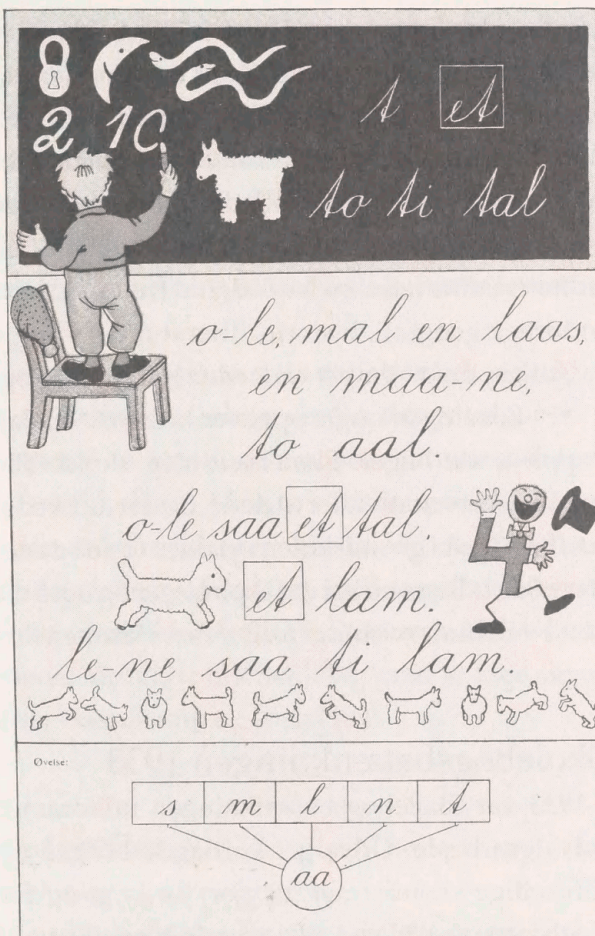 t et
2 10
to ti tal
o-le, mal en laas,
en maa-ne,
to aal.
o-le saa et tal.
et lam.
le-ne saa ti lam.
Øvelse:
s m l n t
aa